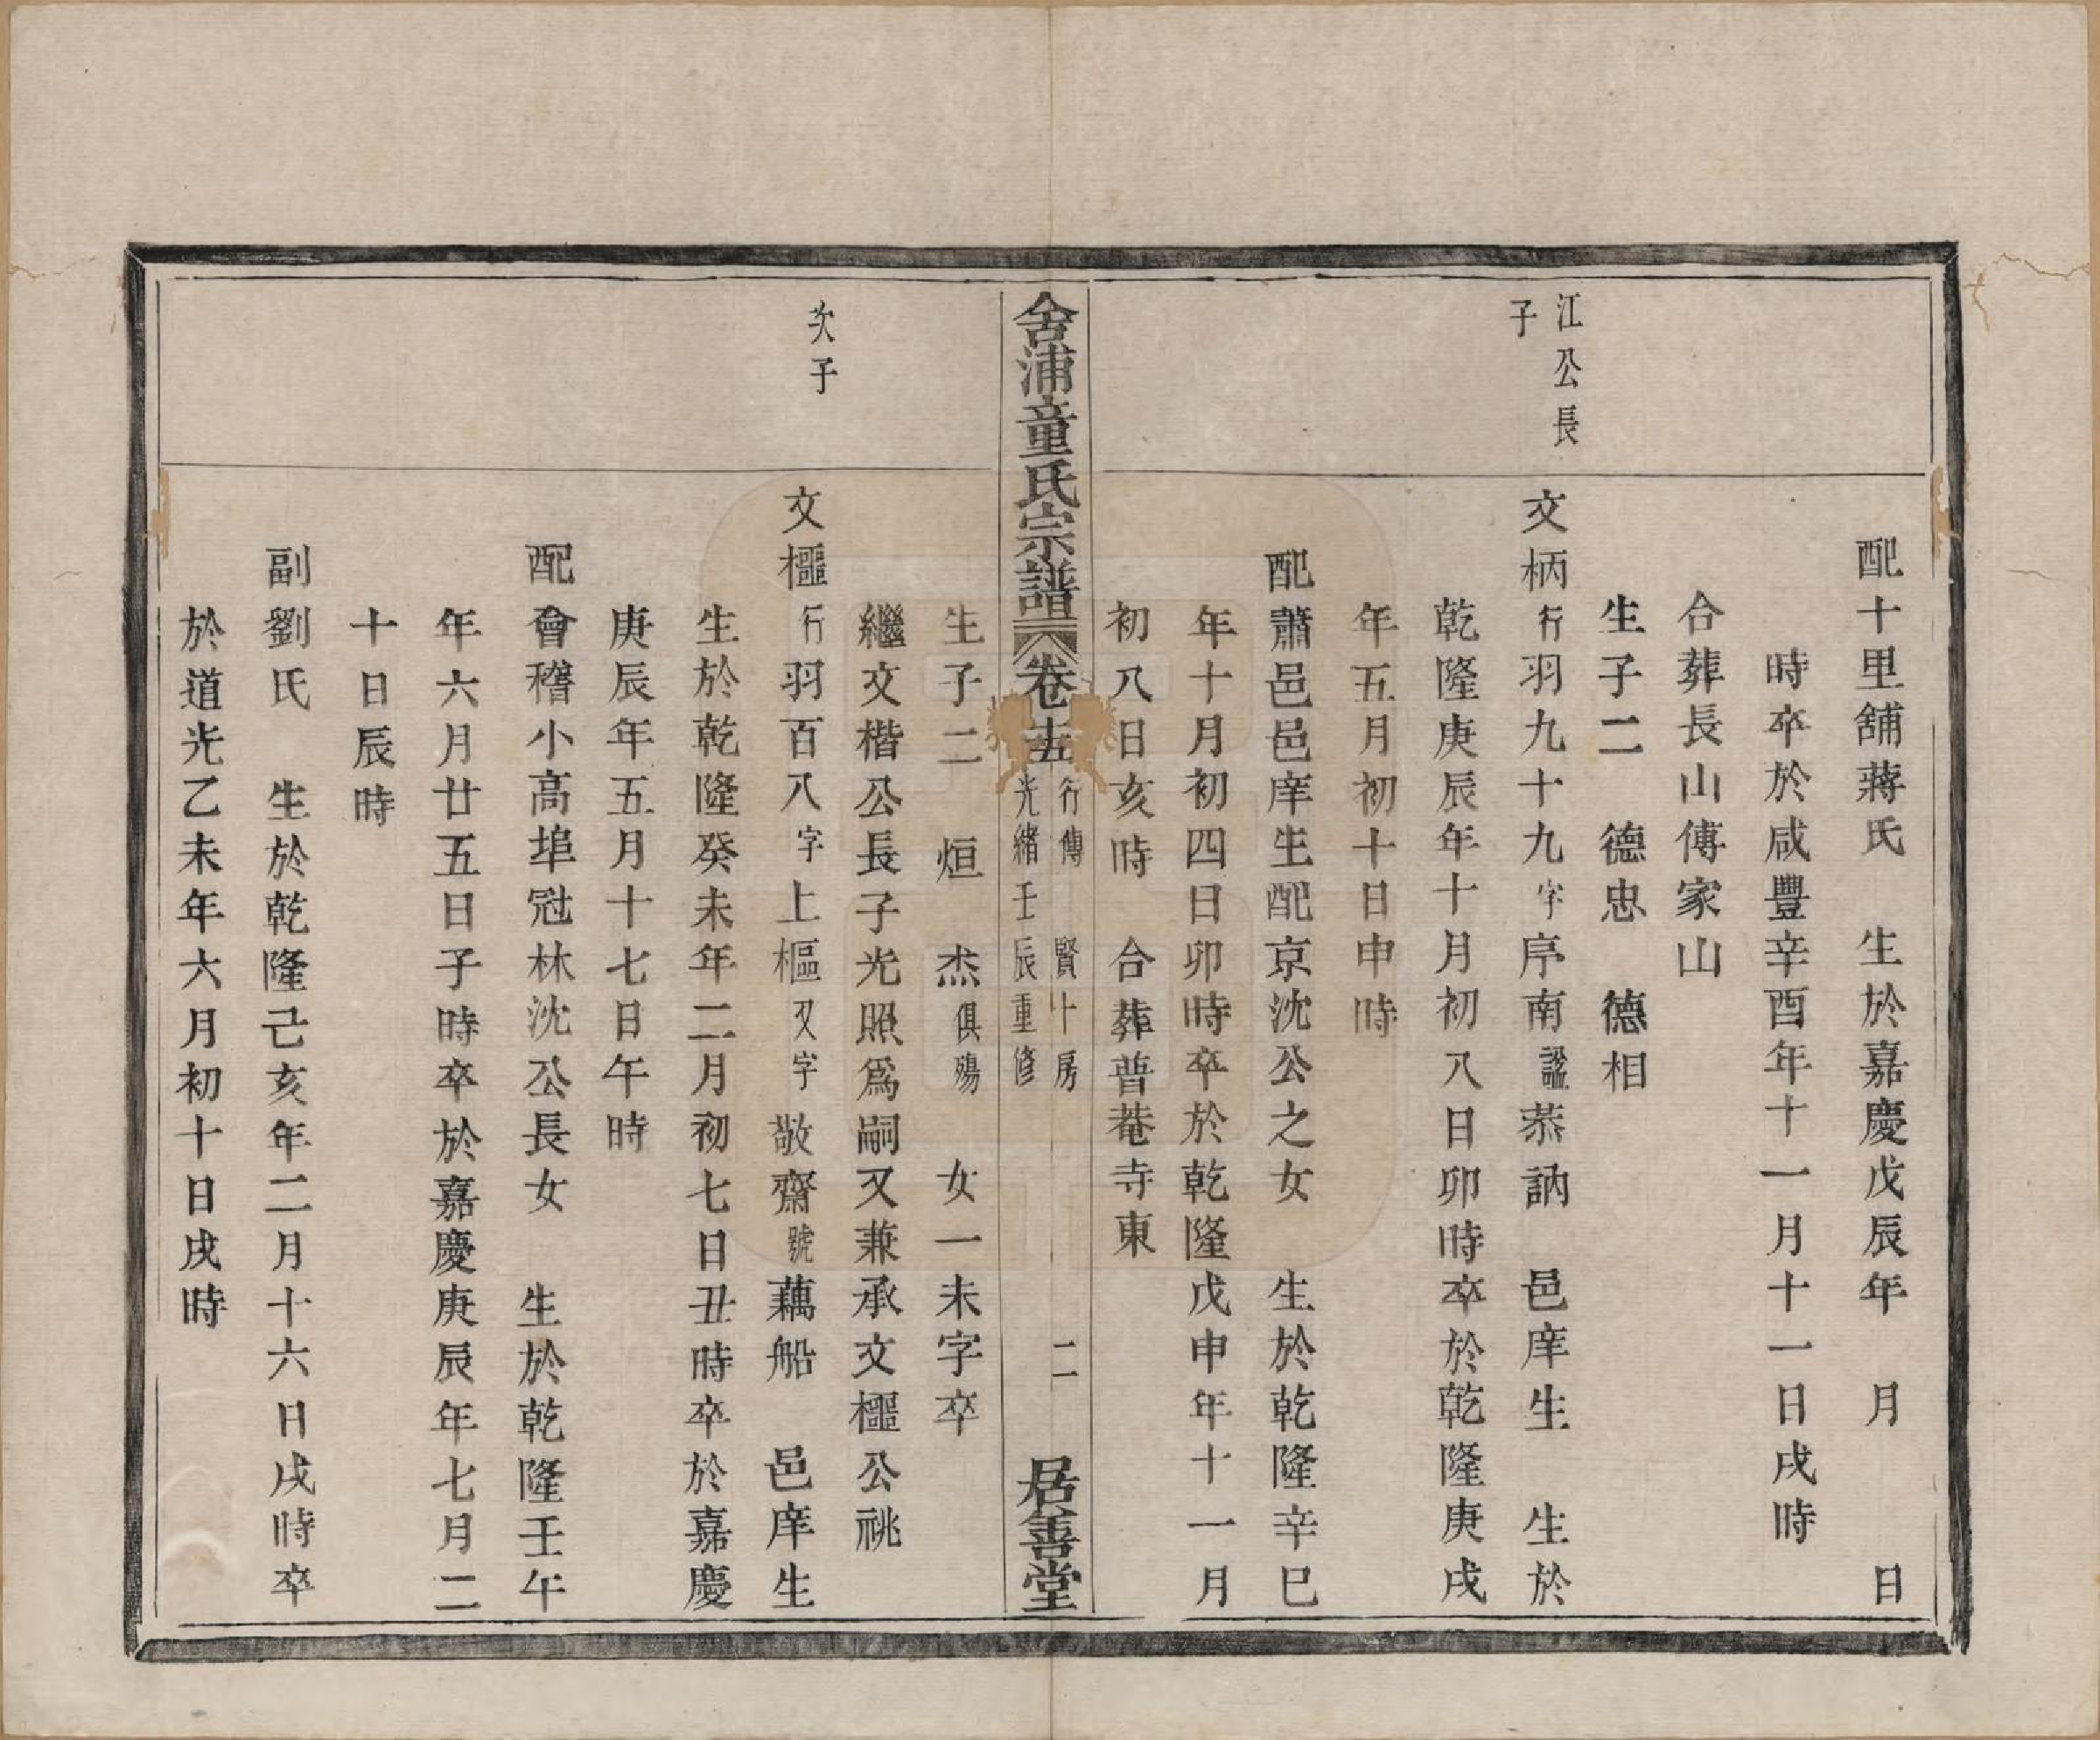 配十里舖蔣氏　生於嘉慶戊辰年　月　　日
時卒於咸豐辛酉年十一月十一日戌時
合葬長山傅家山
生子二　德忠　德相
江公長
子
文柄行羽九十九字序南諡恭訥　邑庠生　生於
乾隆庚辰年十月初八日卯時卒於乾隆庚戌
年五月初十日申時
配蕭邑邑庠生配京沈公之女　生於乾隆辛巳
年十月初四日卯時卒於乾隆戊申年十一月
初八日亥時　合葬普菴寺東
舍浦童氏宗譜　卷十五　行傳　賢十房　二　居善堂
光緒壬辰重修
生子二　烜　杰俱殤　女一未字卒
繼文楷公長子光照爲嗣又兼承文櫙公祧
次子
文櫙行羽百八字上樞又字敬齋號藕船　邑庠生
生於乾隆癸未年二月初七日丑時卒於嘉慶
庚辰年五月十七日午時
配會稽小高埠冠林沈公長女　生於乾隆壬午
年六月廿五日子時卒於嘉慶庚辰年七月二
十日辰時
副劉氏　生於乾隆己亥年二月十六日戌時卒
於道光乙未年六月初十日戌時